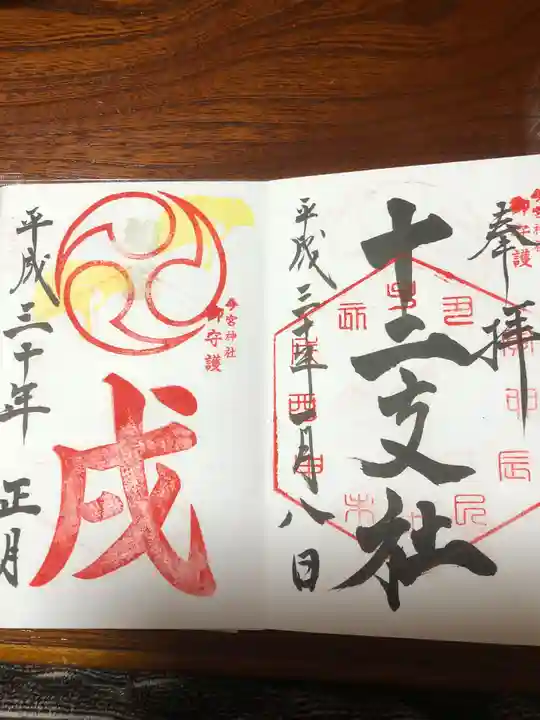 奉拝
今宮神社
御守護
十二支社
平成三十年一月八日
今宮神社
御守護
戌
平成三十年 正月